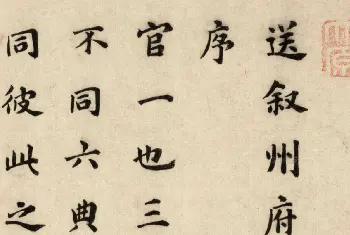 送叙州府
序
官一也三
不同六典
同彼此之